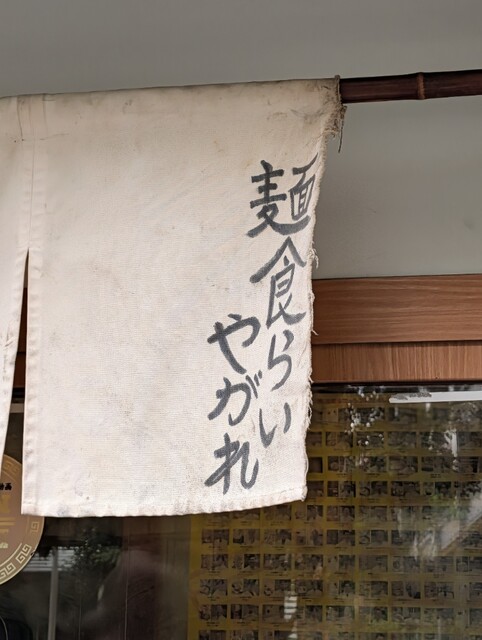 麺食らい
やがれ